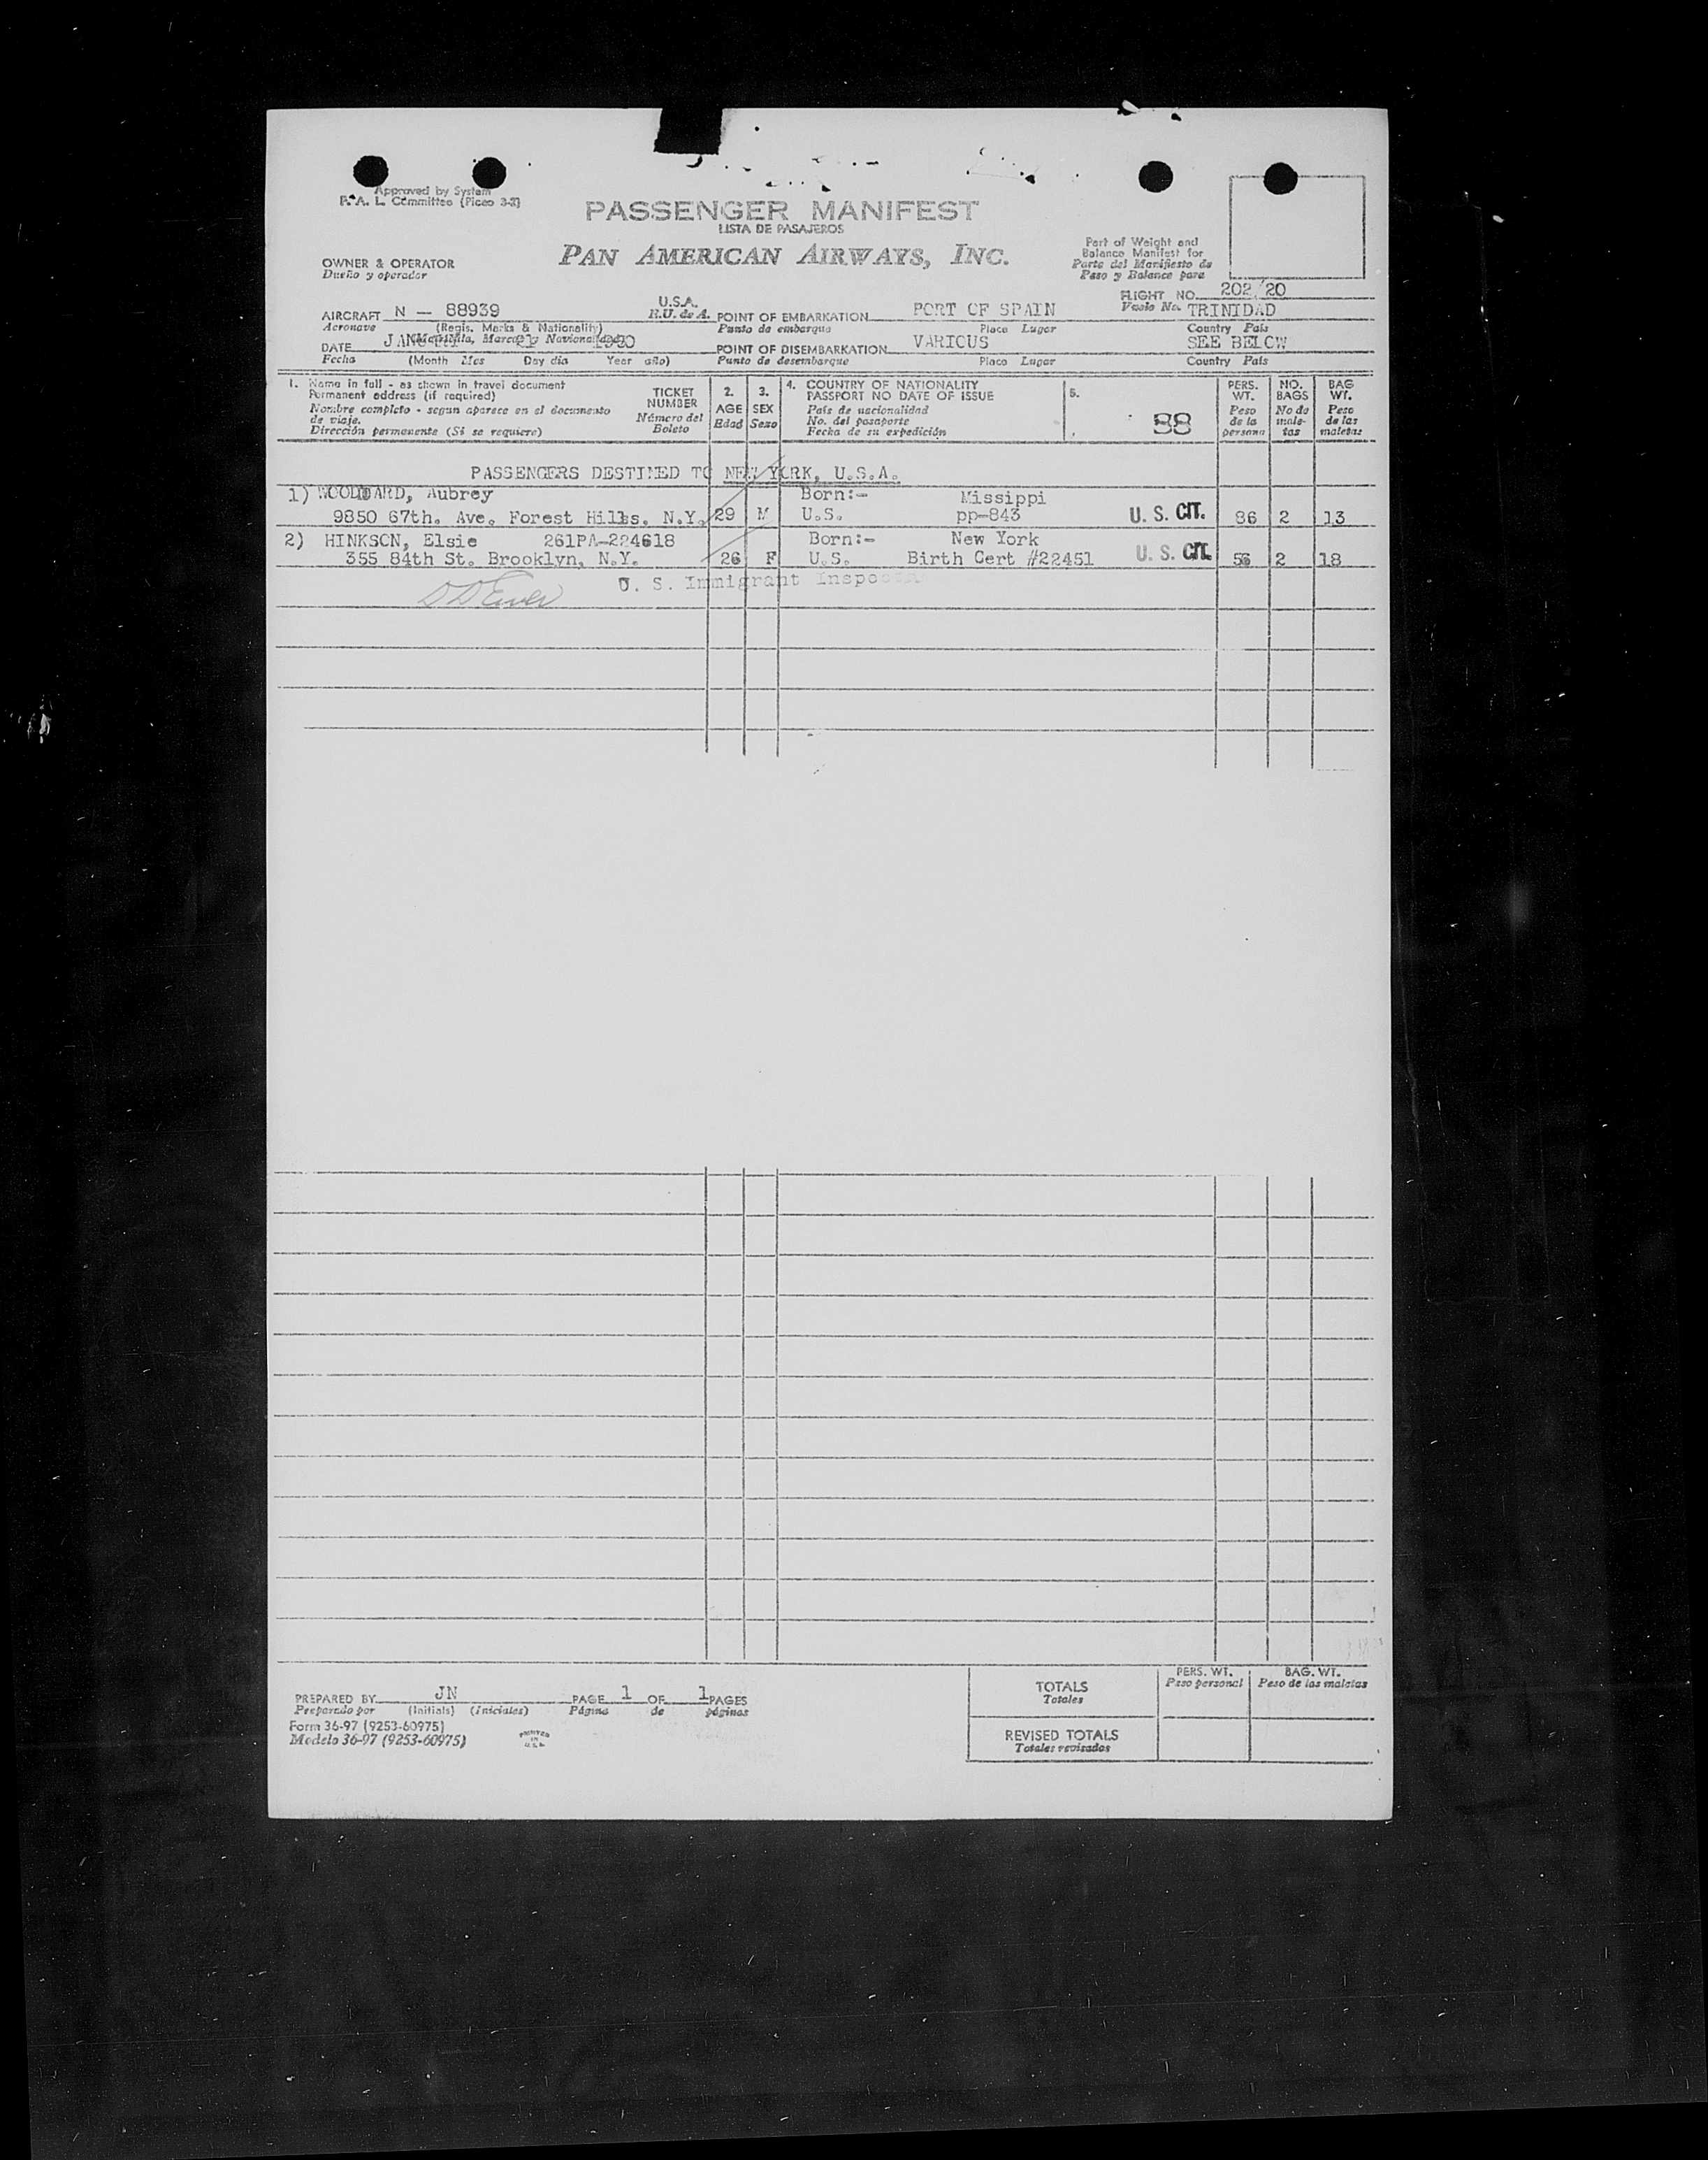 Approved by System
F. A. L. Committee (Picao 3-3)
PASSENGER MANIFEST
LISTA DE PASAJEROS
PAN AMERICAN AIRWAYS, INC.
OWNER & OPERATOR
Dueño y operador
Part of Weight and
Balance Manifest for
Parte del Manifiesto de
Peso y Balance para
FLIGHT NO. 202/20
Vuelo No.
AIRCRAFT N - 88939 U.S.A.
Aeronave (Regis. Marks & Nationality) E.U. de A.
Matrícula, Marcas y Nacionalidad
POINT OF EMBARKATION PORT OF SPAIN TRINIDAD
Punto de embarque Place Lugar Country País
DATE JANUARY 21 1950
Fecha (Month Mes Day día Year año)
POINT OF DISEMBARKATION VARIOUS SEE BELOW
Punto de desembarque Place Lugar Country País
1. Name in full - as shown in travel document
Permanent address (if required)
Nombre completo - segun aparece en el documento
de viaje.
Dirección permanente (Si se requiere)
TICKET
NUMBER
Número del
Boleto
2.
AGE
Edad
3.
SEX
Sexo
4. COUNTRY OF NATIONALITY
PASSPORT NO DATE OF ISSUE
País de nacionalidad
No. del pasaporte
Fecha de su expedición
5.
88
PERS.
WT.
Peso
de la
persona
NO.
BAGS
No de
male-
tas
BAG
WT.
Peso
de las
maletas
PASSENGERS DESTINED TO NEW YORK, U.S.A.
1) WOODDARD, Aubrey Born:- Missippi
9850 67th. Ave. Forest Hills. N.Y. 29 M U.S. pp-843 U. S. CIT. 86 2 13
2) HINKSON, Elsie 261PA-224618 Born:- New York
355 84th St. Brooklyn, N.Y. 26 F U.S. Birth Cert #22451 U. S. CIT. 56 2 18
U. S. Immigrant Inspector
TOTALS
Totales
PERS. WT.
Peso personal
BAG. WT.
Peso de las maletas
REVISED TOTALS
Totales revisados
PREPARED BY JN PAGE 1 OF 1 PAGES
Preparado por (Initials) (Iniciales) Página de páginas
Form 36-97 (9253-60975)
Modelo 36-97 (9253-60975)
PRINTED
IN
U.S.A.